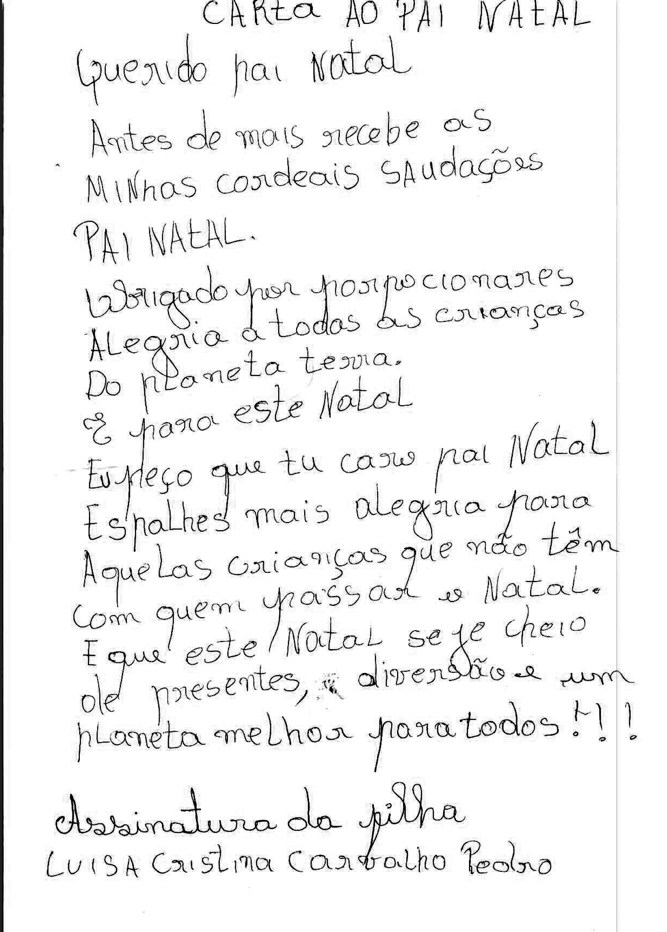 CARta AO PAI NAtAL
Querido pai Natal
Antes de mais recebe as
MINhas cordeais SAudações
PAI NAtAL.
Obrigado por porpocionares
ALegria a todas as crianças
Do pLaneta terra.
E para este Natal
Eu peço que tu caro pai Natal
Espalhes mais alegria para
AqueLas crianças que não têm
Com quem passar o Natal.
E que este NataL seje cheio
de presentes, diversão e um
pLaneta melhor para todos!!!
Assinatura da filha
LUISA Cristina Carvalho Pedro